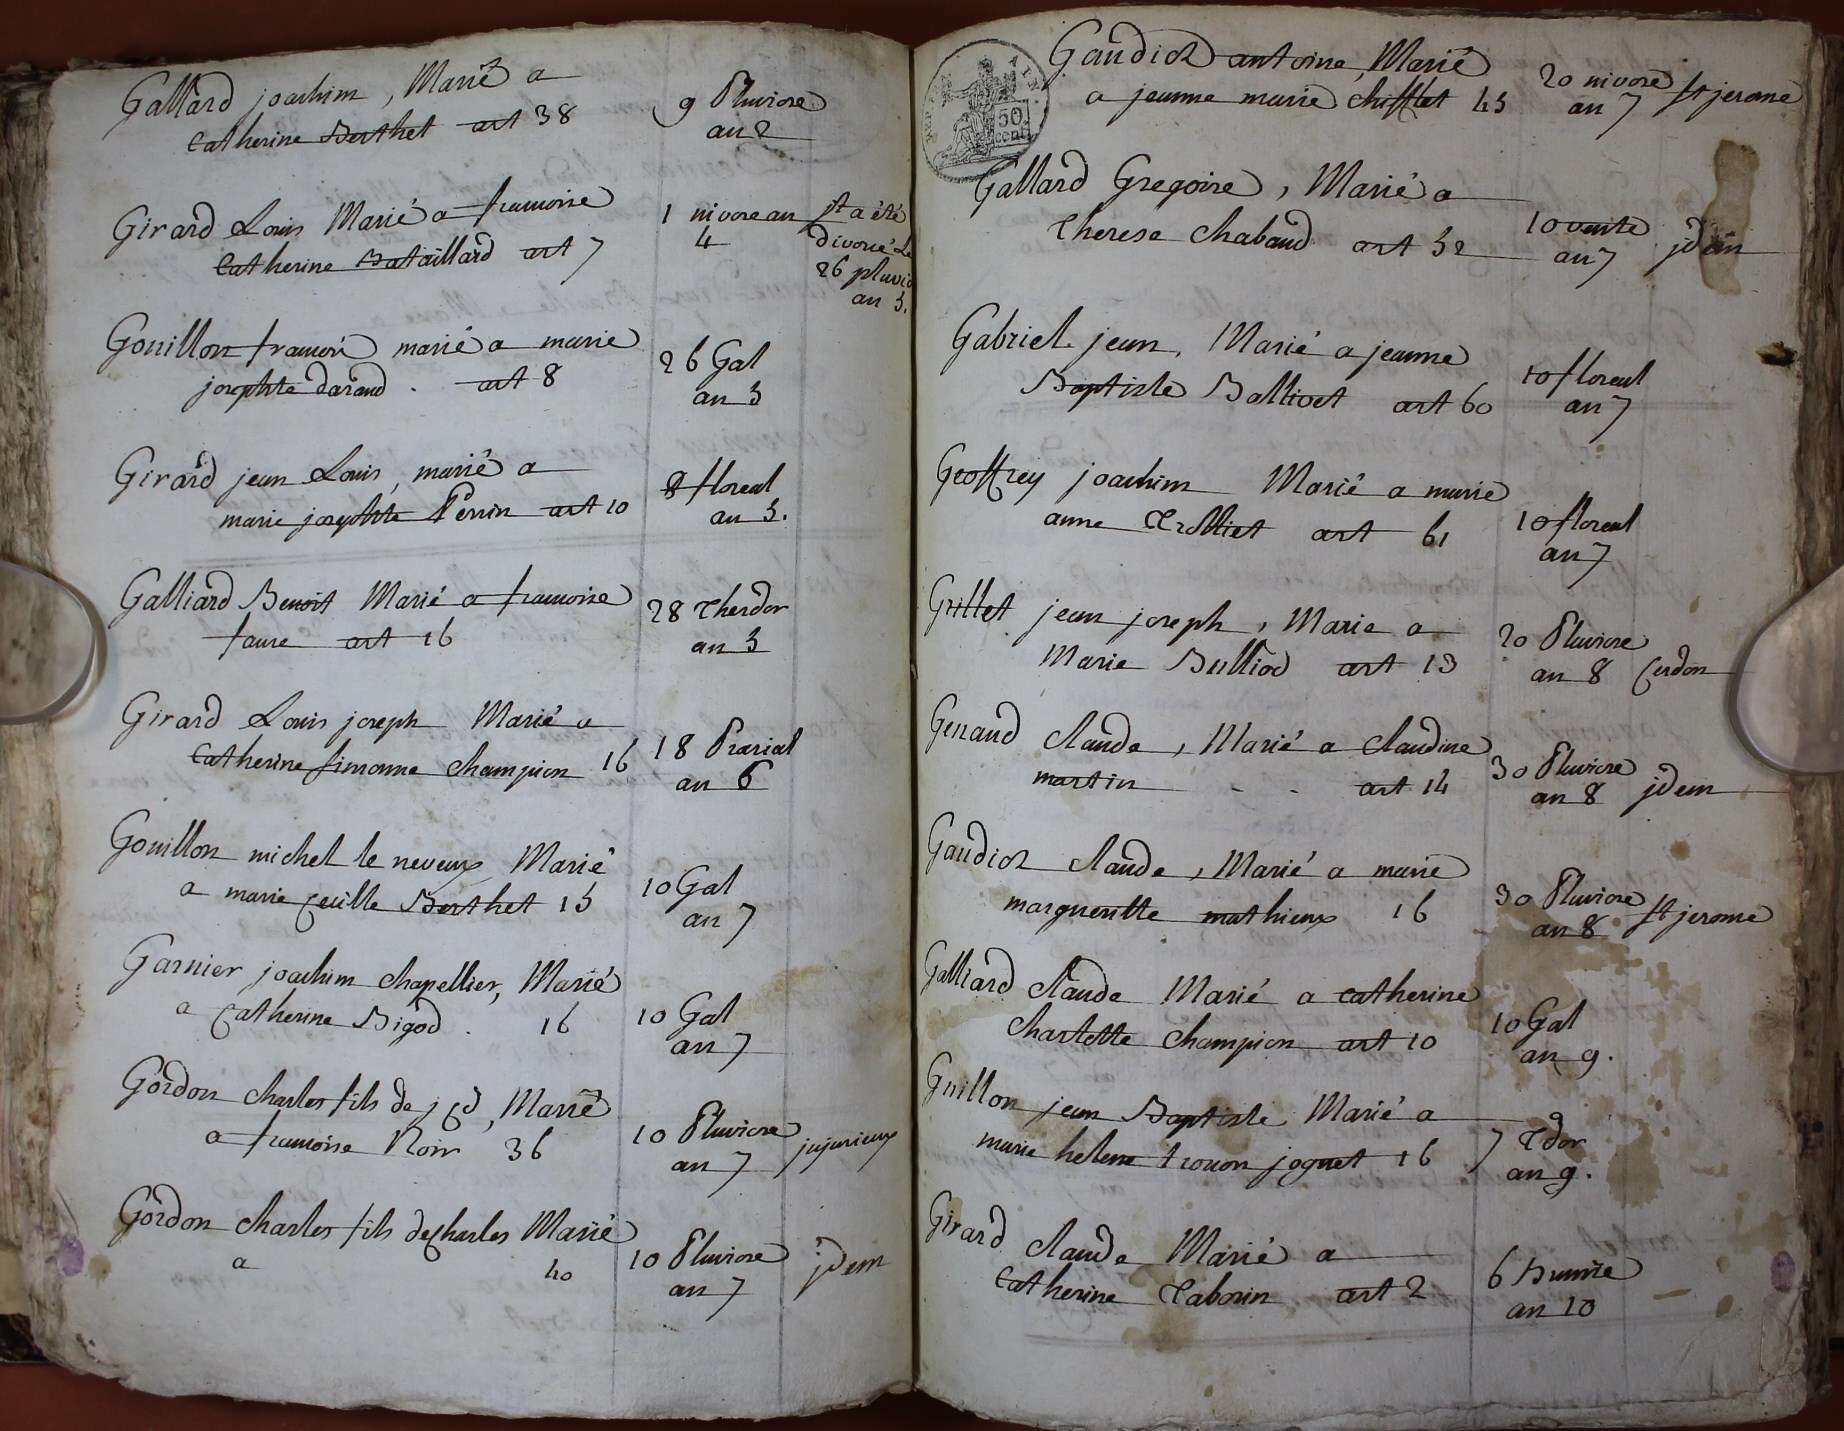 Gallard joachim, Marié a
catherine Berthet art 38
9 Pluviose
an 2
Girard Louis Marié a francoise
Catherine Bataillard art 7
1 nivose an
4
il a été
divorcé Le
26 pluvio
an 5.
Gouillon francois marié a marie
josephte darand . art 8
26 Gal
an 3
Girard jean Louis, marié a
marie josephte Perrin art 10
8 floreal
an 3.
Galliard Benoit Marié a francoise
faure art 16
28 Therdor
an 3
Girard Louis joseph Marié a
Catherine simonne champion 16
18 Prarial
an 6
Gouillon michel le neveux Marié
a marie cecille Berthet 15
10 Gal
an 7
Garnier joachim chapellier, Marié
a catherine Bigod . 16
10 Gal
an 7
Gordon charles fils de j cd, Marié
a francoise Noir 36
10 Pluviose
an 7
jujurieux
Gordon charles fils de charles Marié
a 40
10 Pluviose
an 7
jdem
50
cent
Gaudioz antoine, Marié
a jeanne marie chifflet 45
20 nivose
an 7
st jerome
Gallard Gregoire, Marié a
Therese chabaud art 52
10 vente
an 7
jdem
Gabriel jean, Marié a jeanne
Baptiste Ballivet art 60
10 floreal
an 7
Geoffrey joachim Marié a marie
anne Trolliet art 61
10 floreal
an 7
Grillet jean joseph, Marie a
Marie Bulliod art 13
20 Pluviose
an 8
Cerdon
Genaud claude, Marié a claudine
martin - - art 14
30 Pluviose
an 8
jdem
Gaudioz claude, Marié a marie
margueritte mathieux 16
30 Pluviose
an 8
st jerome
Galliard claude Marié a catherine
charlotte champion art 10
10 Gal
an 9.
Guillon jean Baptiste Marié a
marie helene trouon joguet 16
7 Tdor
an 9.
Girard claude Marié a
catherine Taborin art 2
6 Brumre
an 10